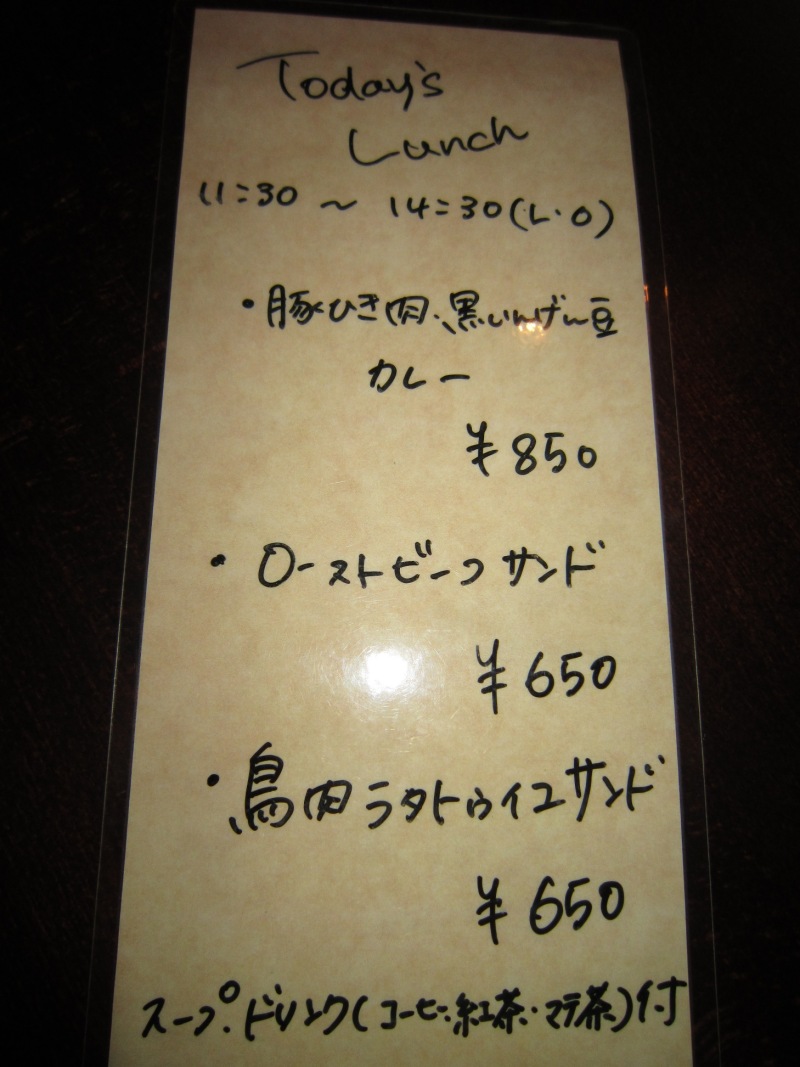 Today's
Lunch
11:30 ~ 14:30(L.O)
・豚ひき肉、黒いんげん豆
カレー
¥850
・ローストビーフサンド
¥650
・鳥肉ラタトゥイユサンド
¥650
スープ、ドリンク(コーヒー・紅茶・マテ茶)付